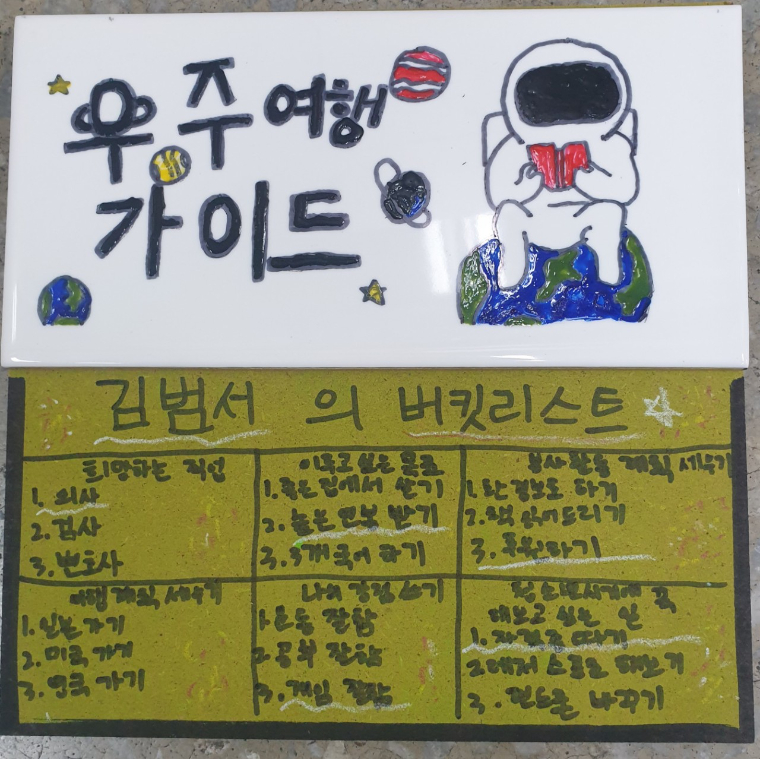 우주여행
가이드
김범서 의 버킷리스트
희망하는 직업
1. 의사
2. 검사
3. 변호사
이루고 싶은 목표
1. 좋은 집에서 살기
2. 높은 연봉 받기
3. 3개 국어 하기
봉사활동 계획 세우기
1.
2. 책 읽어드리기
3.
여행 계획 세우기
1. 일본 가기
2. 미국 가기
3. 영국 가기
나의 강점 쓰기
1. 운동 잘함
2. 공부 잘함
3. 게임 잘함
청소년시기에 꼭
해보고 싶은 일
1. 자격증 따기
2.
3. 핸드폰 바꾸기